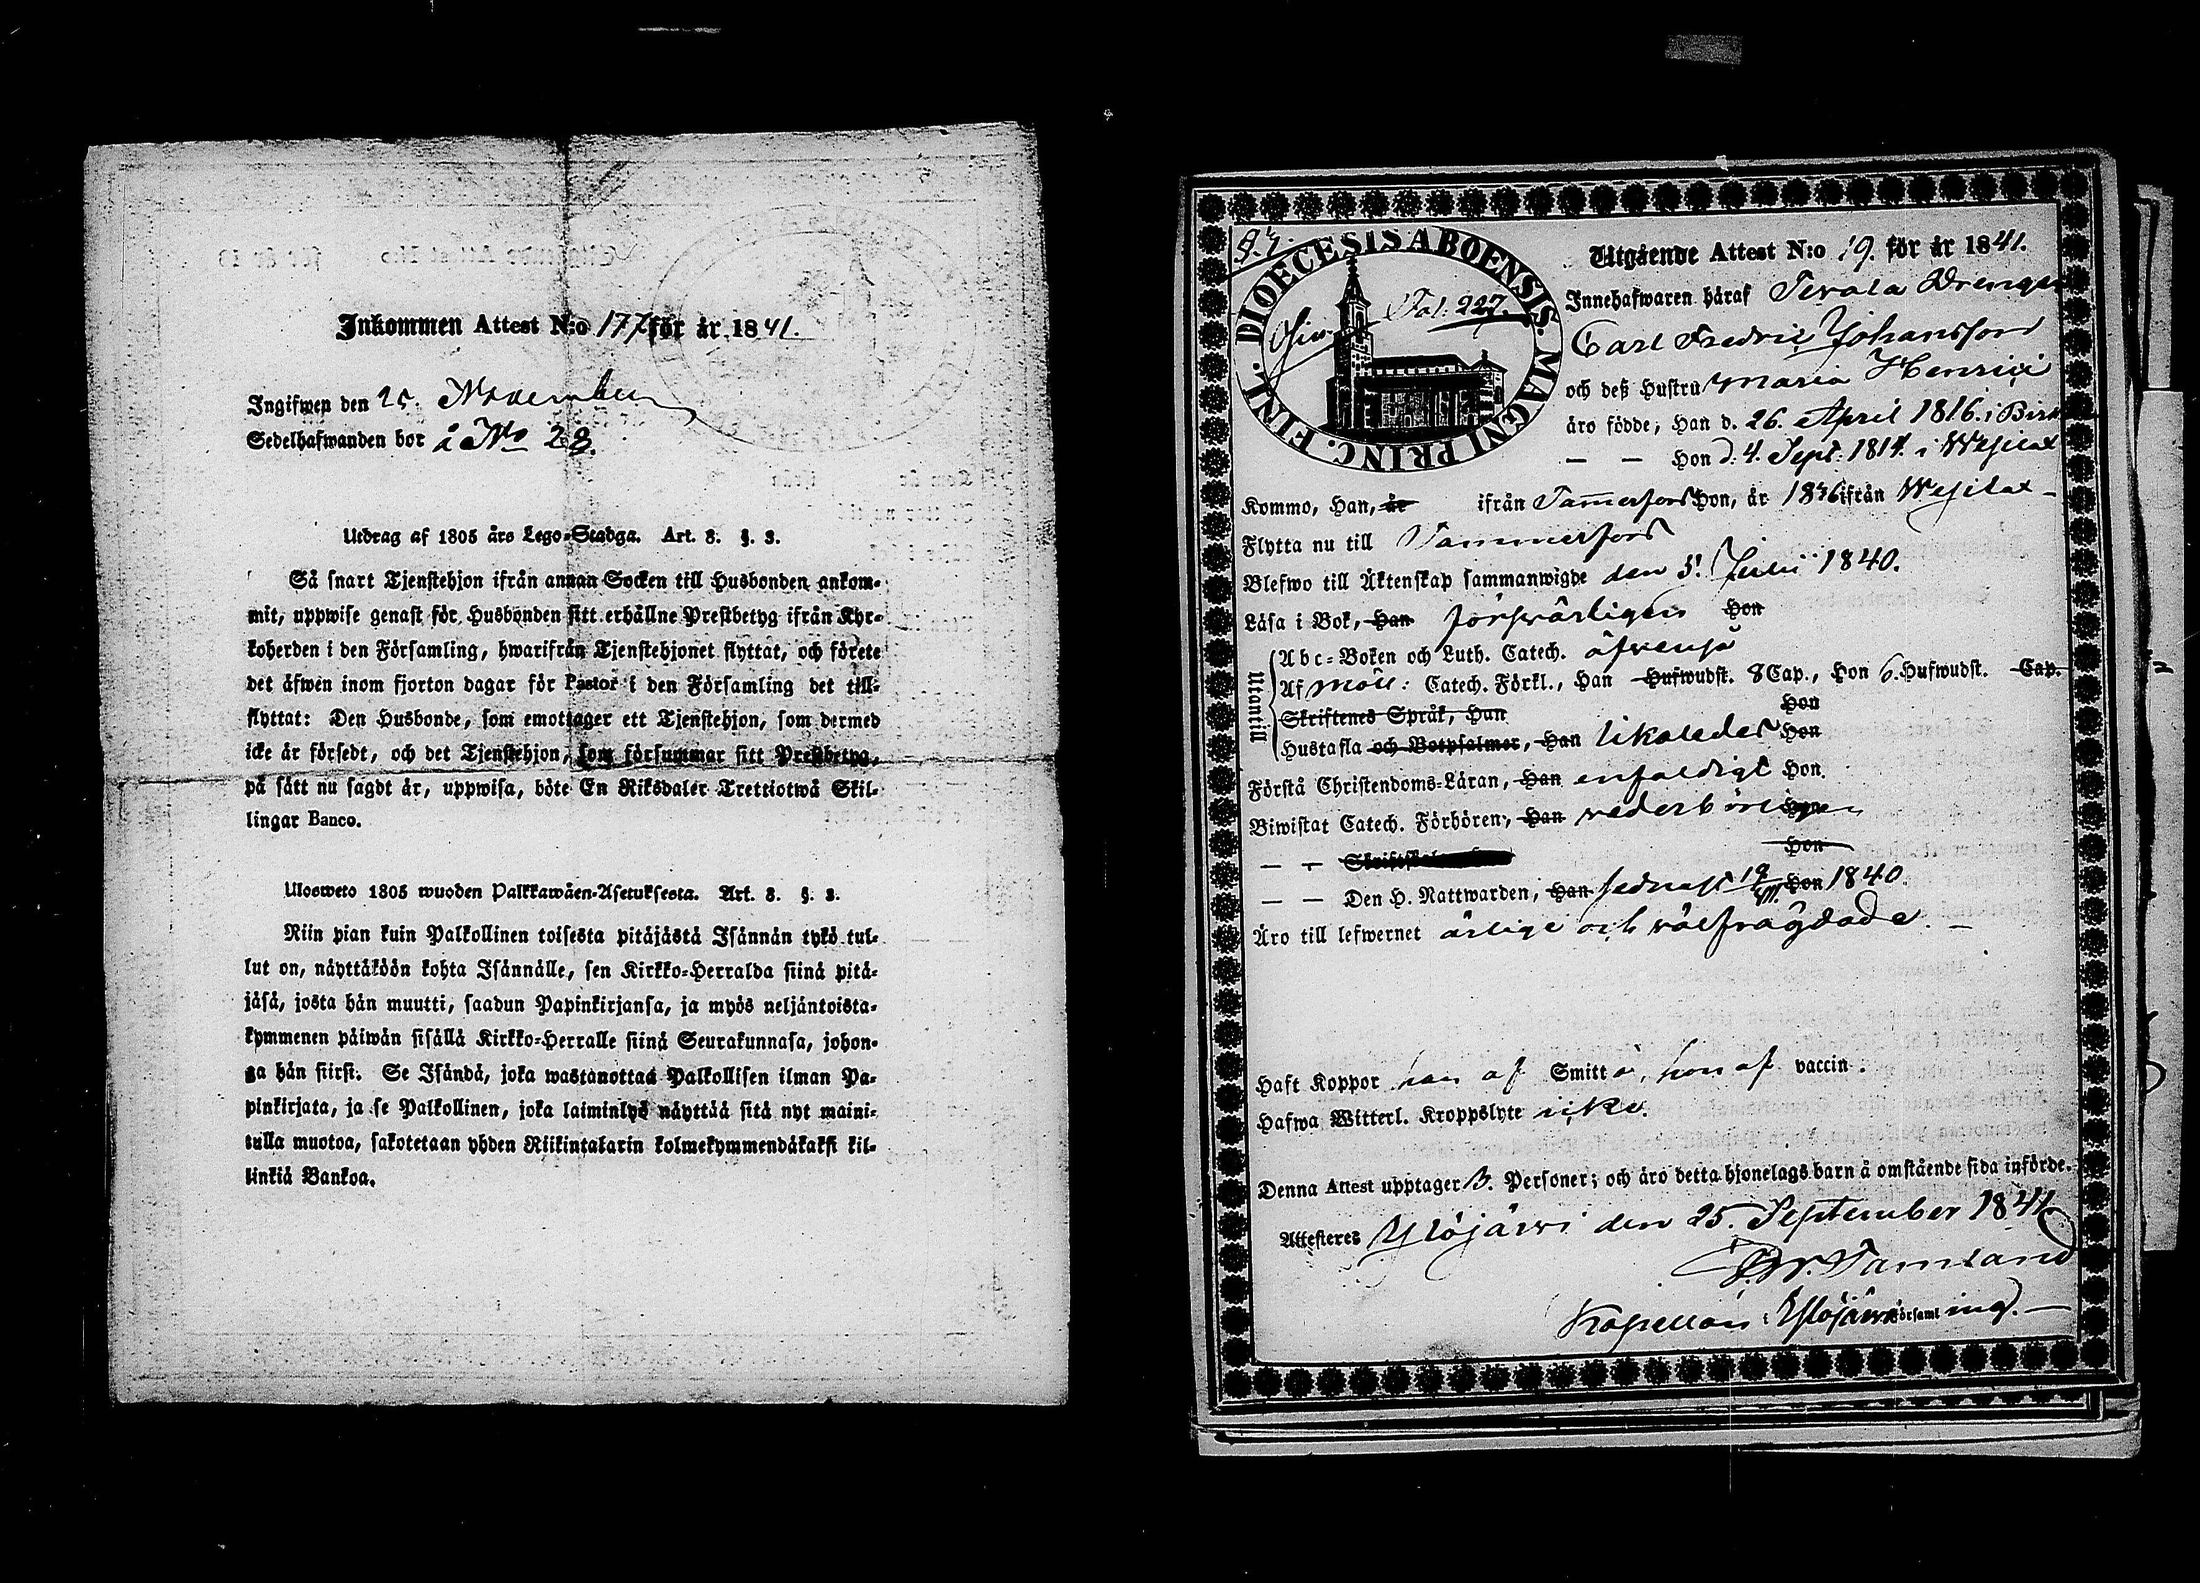 Inkommen Attest N:o 177 för år 1841.
Ingifwen den 25. November
Sedelhafwanden bor å No 28.
Utdrag af 1805 års Lego-Stadga. Art. 8. §. 3.
Så snart Tjenstehjon ifrån annan Socken till Husbonden ankom-
mit, uppwise genast för Husbonden sitt erhållne Prestbetyg ifrån Kyr-
koherden i den Församling, hwarifrån Tjenstehjonet flyttat, och förete
det äfwen inom fjorton dagar för Pastor i den Församling det till-
flyttat: Den Husbonde, som emottager ett Tjenstehjon, som dermed
icke är försedt, och det Tjenstehjon, som försummar sitt Prestbetyg,
på sätt nu sagdt är, uppwisa, böte En Riksdaler Trettiotwå Skil-
lingar Banco.
Ulosweto 1805 wuoden Palkkawäen-Asetuksesta. Art. 8. §. 3.
Niin pian kuin Palkollinen toisesta pitäjästä Isännän tykö tul-
lut on, näyttäköön kohta Isännälle, sen Kirkko-Herralda siinä pitä-
jäsä, josta hän muutti, saadun Papinkirjansa, ja myös neljäntoista-
kymmenen päiwän sisällä Kirkko-Herralle siinä Seurakunnasa, johon-
ga hän siirsi. Se Isändä, joka wastanottaa Palkollisen ilman Pa-
pinkirjata, ja se Palkollinen, joka laiminlyö näyttää sitä nyt maini-
tulla muotoa, sakotetaan yhden Riikintalarin kolmekymmendäkaksi kil-
linkiä Bankoa.
DIOECESIS ABOENSIS. MAGNI PRINC. FINL.
Fol. 227.
Utgående Attest N:o 19. för år 1841.
Innehafwaren häraf Terala Drengen
Carl Fredric Johansson
och deß Hustru Maria Henrici
äro födde, Han d. 26. April 1816. i Birk
— — Hon d. 4. Sept. 1814. i Wesilax
Kommo, Han, år ifrån Tamerfors Hon, år 1836 ifrån Wesilax —
Flytta nu till Tammerfors
Blefwo till Äktenskap sammanwigde den 5. Julii 1840.
Läsa i Bok, Han försvarligen Hon
Utantill
Abc-Boken och Luth. Catech. äfvenså
Af Möll: Catech. Förkl., Han Hufwudst. 8 Cap., Hon 6. Hufwudst. Cap.
Skriftenes Språk, Han Hon
Hustafla och Botpsalmer, Han likaledes Hon
Förstå Christendoms-Läran, Han enfaldigt Hon
Biwistat Catech. Förhören, Han vederbörligen Hon
— — Hon
— — Den H. Nattwarden, Han sednast 19/VII Hon 1840.
Äro till lefwernet ärlige och välfrägdade. —
Haft Koppor han af Smitta, hon af vaccin.
Hafwa Witterl. Kroppslyte icke.
Denna Attest upptager 3. Personer; och äro detta hjonelags barn å omstående sida införde.
Attesteres Ylöjärvi den 25. September 1841
Tamland
Kapellan i Ylöjärvi Församl ing. —